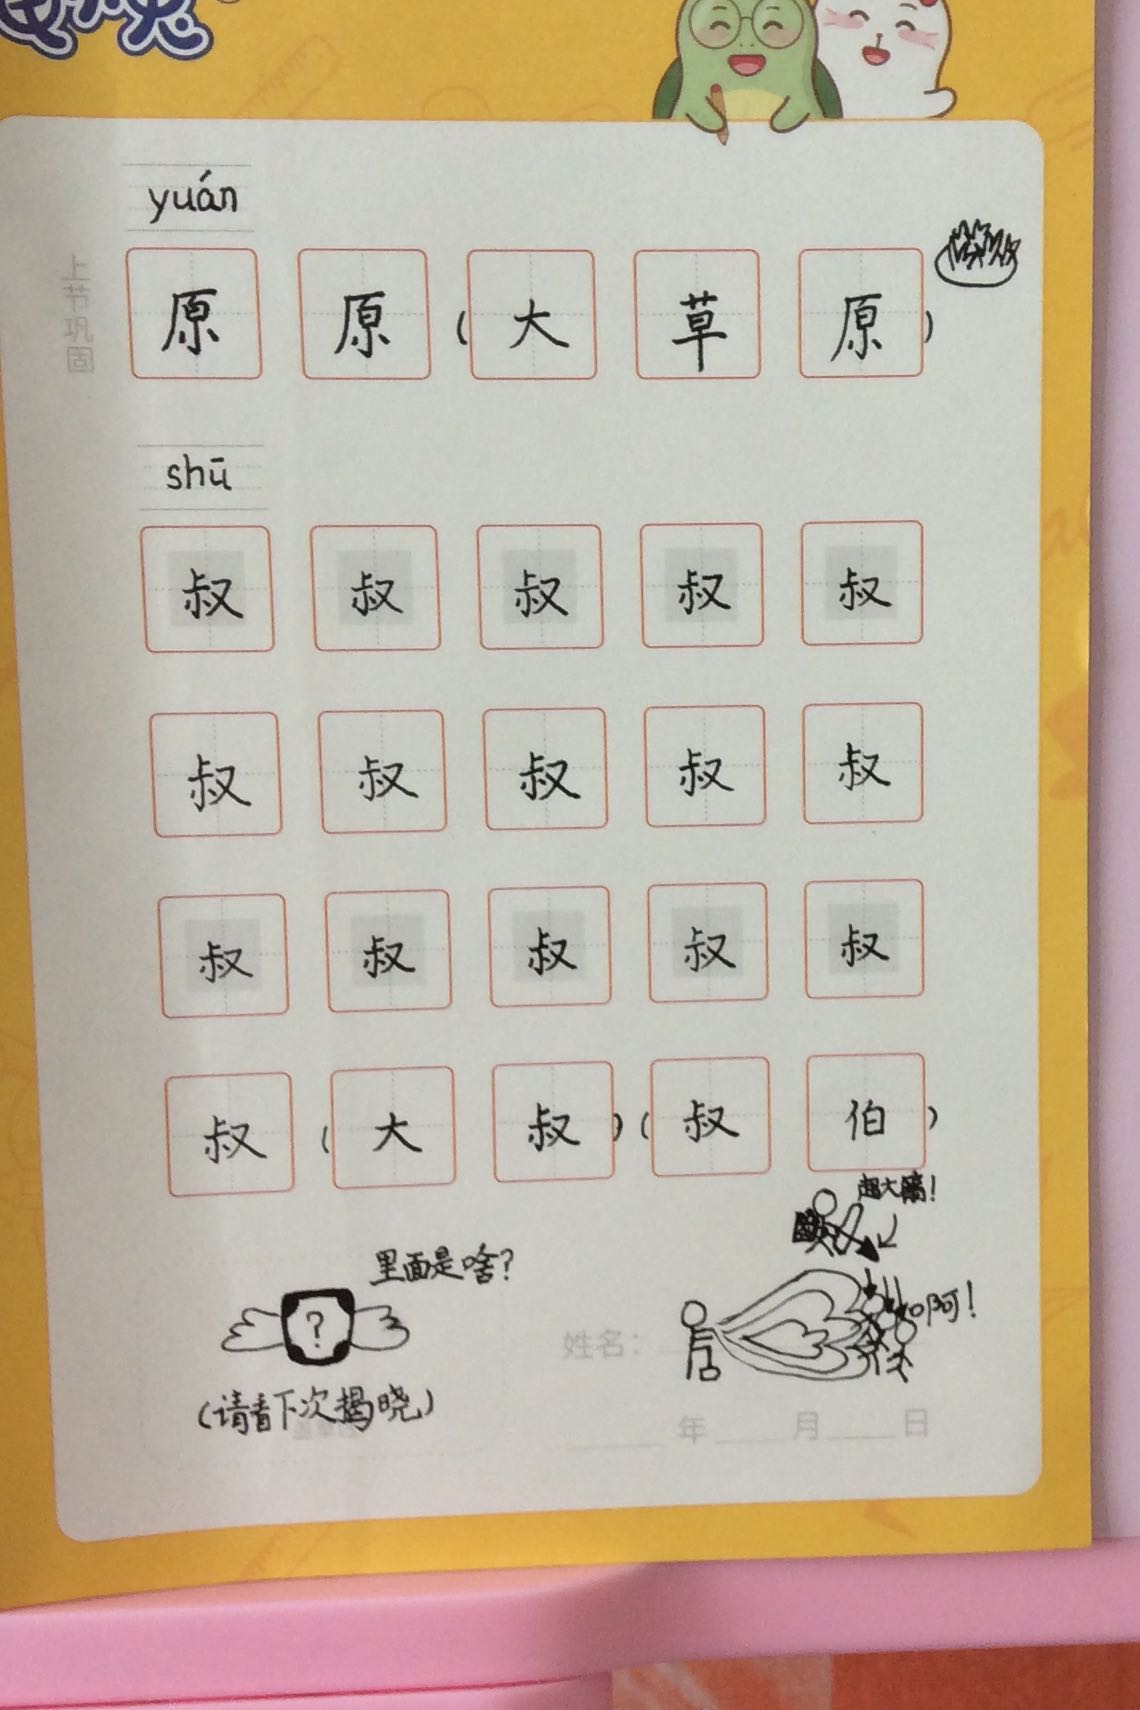 yuán
上节巩固
原 原 (大 草 原)
shū
叔 叔 叔 叔 叔
叔 叔 叔 叔 叔
叔 叔 叔 叔 叔
叔 (大 叔) (叔 伯)
超大
里面是啥?
?
啊!
姓名:
(请看下次揭晓)
年 月 日